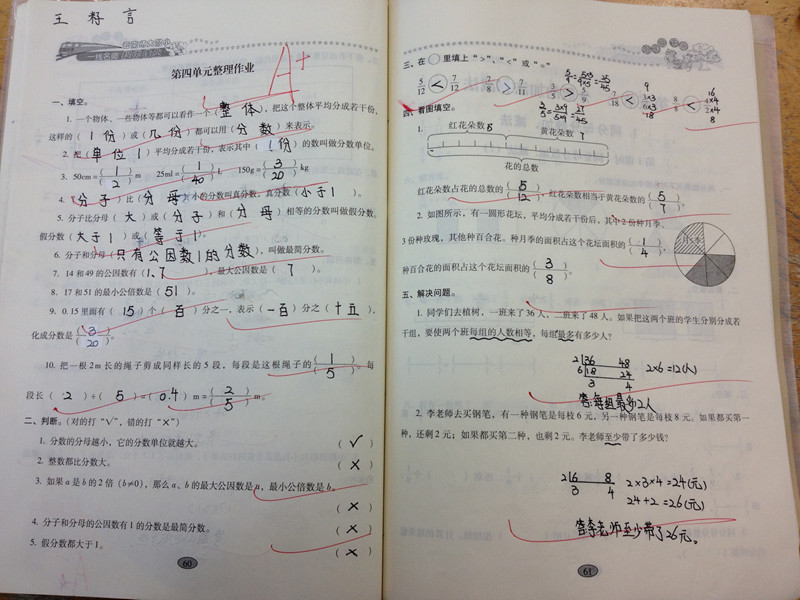 王籽言
A+
第四单元整理作业
一、填空。
1. 一个物体、一些物体等都可以看作一个(整体),把这个整体平均分成若干份,
这样的(1份)或(几份)都可以用(分数)来表示。
2. 把(单位1)平均分成若干份,表示其中(1份)的数叫做分数单位。
3. 50cm=(1/2)m 25ml=(1/40)L 150g=(3/20)kg
4. (分子)比(分母)小的分数叫真分数,真分数(小于1)。
5. 分子比分母(大)或(分子)和(分母)相等的分数叫做假分数。
假分数(大于1)或(等于1)。
6. 分子和分母(只有公因数1的分数),叫做最简分数。
7. 14和49的公因数有(1、7),最大公因数是(7)。
8. 17和51的最小公倍数是(51)。
9. 0.15里面有(15)个(百)分之一,表示(一百)分之(十五),
化成分数是(3/20)。
10. 把一根2m长的绳子剪成同样长的5段,每段是这根绳子的(1/5)。每
段长(2)÷(5)=(0.4)m=(2/5)m。
二、判断。(对的打“√”,错的打“×”)
1. 分数的分母越小,它的分数单位就越大。 (√)
2. 整数都比分数大。 (×)
3. 如果a是b的2倍(b≠0),那么a、b的最大公因数是a,最小公倍数是b。
(×)
4. 分子和分母的公因数有1的分数是最简分数。 (×)
5. 假分数都大于1。 (×)
60
三、在○里填上“>”、“<”或“=”。
5/12 < 7/12 7/8 > 7/11 3/5 > 5/9 7/18 < 8/8
四、看图填空。
1. 红花朵数5 黄花朵数7
花的总数
红花朵数占花的总数的(5/12),红花朵数相当于黄花朵数的(5/7)。
2. 如图所示,有一圆形花坛,平均分成若干份后,其中2份种月季,
3份种玫瑰,其他种百合花。种月季的面积占这个花坛面积的(1/4),
种百合花的面积占这个花坛面积的(3/8)。
月季
五、解决问题。
1. 同学们去植树,一班来了36人,二班来了48人。如果把这两个班的学生分别分成若
干组,要使两个班每组的人数相等,每组最多有多少人?
2 36 48
6 18 24 2×6=12(人)
3 4
答:每组最多12人
2. 李老师去买钢笔,有一种钢笔是每枝6元,另一种钢笔是每枝8元。如果都买第一
种,还剩2元;如果都买第二种,也剩2元。李老师至少带了多少钱?
2 6 8 2×3×4=24(元)
3 4 24+2=26(元)
答:李老师至少带了26元。
61